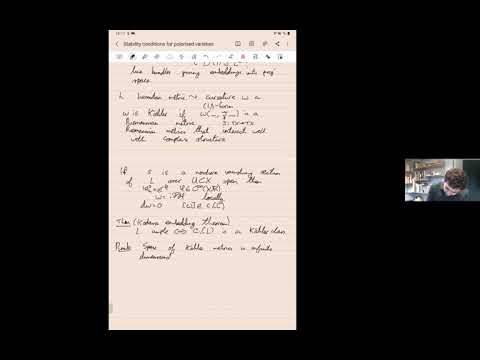 Stability conditions for polarised varieties
line bundles giving embeddings into proj
space.
L hermitian metric ~ curvature ω a
(1,1)-form
ω is Kähler if ω(-, J-) is a
Riemannian metric J: TX→TX
Riemannian metrics that interact well
well complex structure.
If s is a nowhere vanishing section
of L over U⊂X open then
locally
dω=0 [ω] ∈ c₁(L)
Thm (Kodaira embedding theorem)
L ample ⟺ c₁(L) is a Kähler class.
Rmk: Space of Kähler metrics is infinite
dimensional